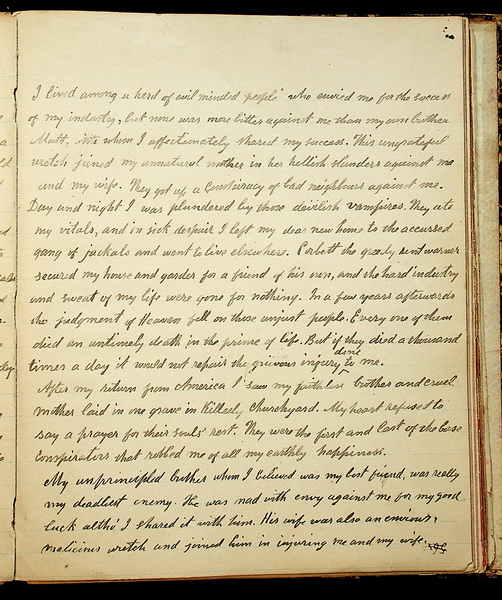 I lived among a herd of evil minded people who envied me for the success
of my industry, but none was more bitter against me than my own brother
Matt, with whom I affectionately shared my success. This ungrateful
wretch joined my unnatural mother in her hellish slanders against me
and my wife. They got up a Conspiracy of bad neighbours against me.
Day and night I was plundered by those devilish vampires. They ate
my vitals, and in sick despair I left my dear new home to the accursed
gang of jackals and went to live elsewhere. Corbett the greedy rent warner
secured my house and garden for a friend of his own, and the hard industry
and sweat of my life were gone for nothing. In a few years afterwards
the judgment of Heaven fell on those unjust people. Every one of them
died an untimely death in the prime of life. But if they died a thousand
times a day it would not repair the grievous injury done to me.
After my return from America I saw my faithless brother and cruel
mother laid in one grave in Killeely Churchyard. My heart refused to
say a prayer for their souls' rest. They were the first and last of the base
Conspirators that robbed me of all my earthly happiness.
My unprincipled brother whom I believed was my best friend, was really
my deadliest enemy. He was mad with envy against me for my good
luck altho' I shared it with him. His wife was also an envious,
malicious wretch and joined him in injuring me and my wife.